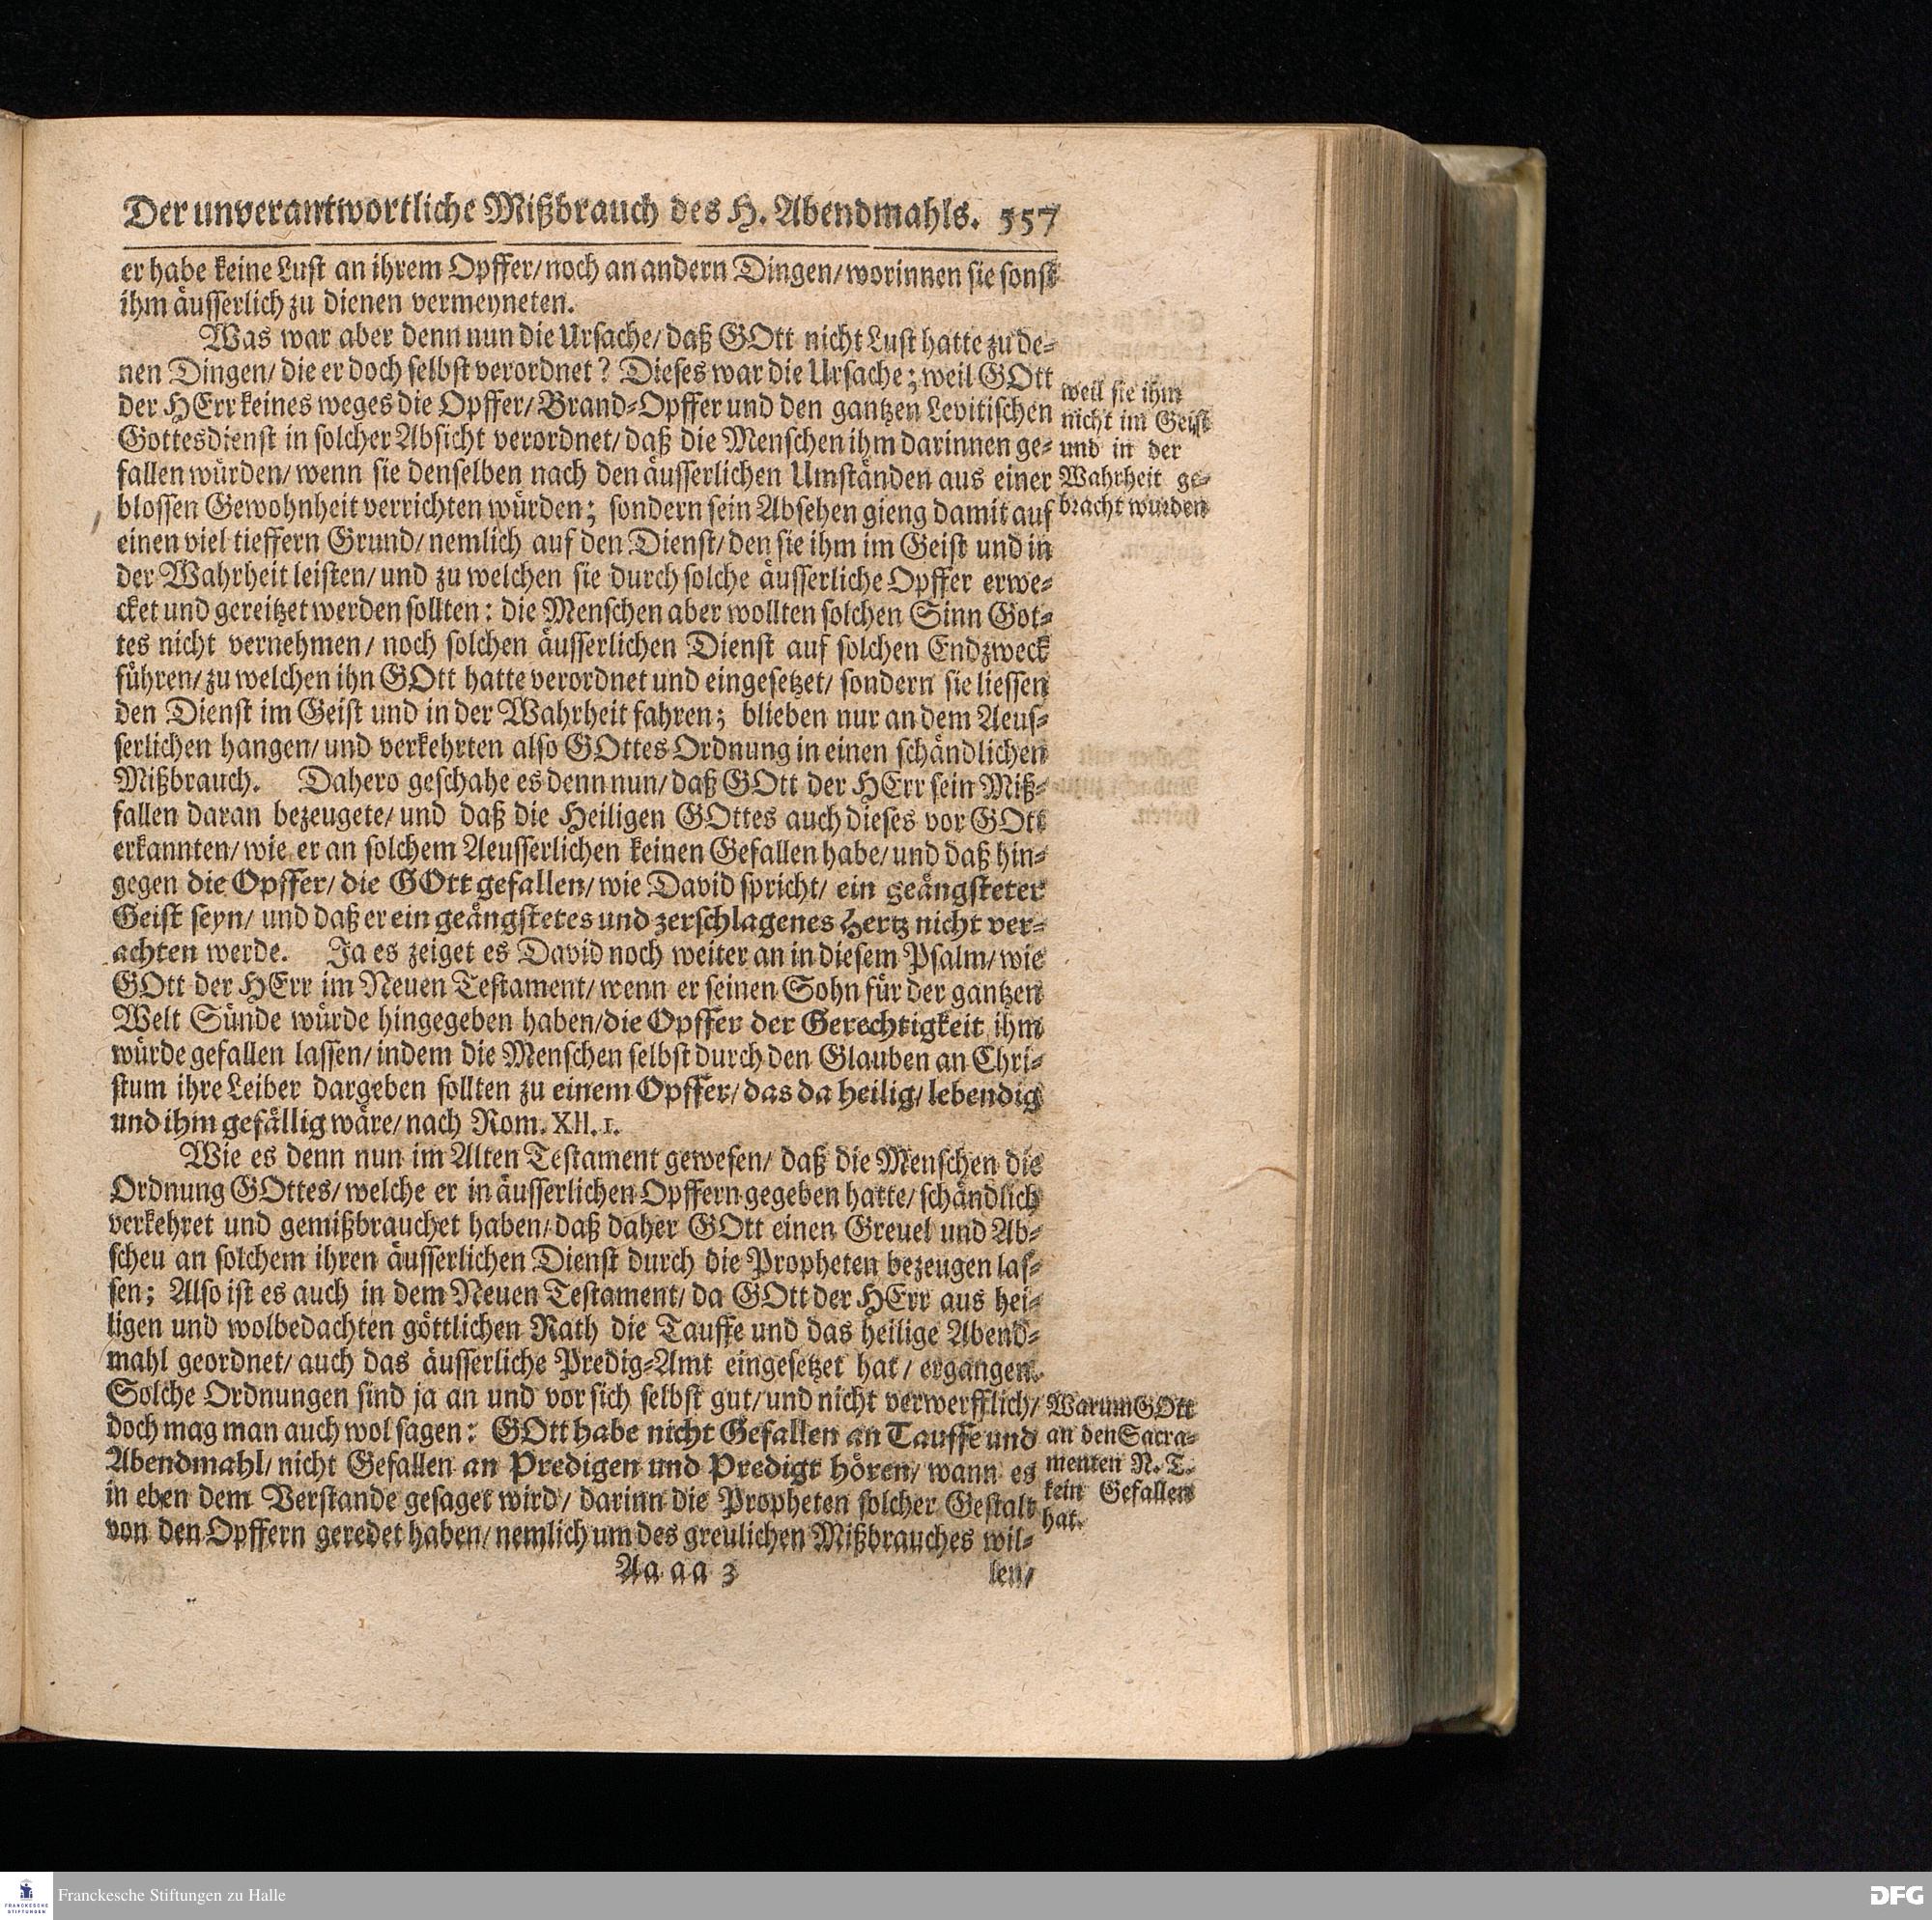 Der unverantwortliche Mißbrauch des H. Abendmahls. 557
er habe keine Lust an ihrem Opffer/ noch an andern Dingen/ worinnen sie sonst
ihm äusserlich zu dienen vermeyneten.
Was war aber denn nun die Ursache/ daß GOtt nicht Lust hatte zu de-
nen Dingen/ die er doch selbst verordnet? Dieses war die Ursache; weil GOtt
der HErr keines weges die Opffer/ Brand-Opffer und den gantzen Levitischen
Gottesdienst in solcher Absicht verordnet/ daß die Menschen ihm darinnen ge-
fallen würden/ wenn sie denselben nach den äusserlichen Umständen aus einer
blossen Gewohnheit verrichten würden; sondern sein Absehen gieng damit auf
einen viel tieffern Grund/ nemlich auf den Dienst/ den sie ihm im Geist und in
der Wahrheit leisten/ und zu welchen sie durch solche äusserliche Opffer erwe-
cket und gereitzet werden sollten: die Menschen aber wollten solchen Sinn Got-
tes nicht vernehmen/ noch solchen äusserlichen Dienst auf solchen Endzweck
führen/ zu welchen ihn GOtt hatte verordnet und eingesetzet/ sondern sie liessen
den Dienst im Geist und in der Wahrheit fahren; blieben nur an dem Aeus-
serlichen hangen/ und verkehrten also GOttes Ordnung in einen schändlichen
Mißbrauch. Dahero geschahe es denn nun/ daß GOtt der HErr sein Miß-
fallen daran bezeugete/ und daß die Heiligen GOttes auch dieses vor GOtt
erkannten/ wie er an solchem Aeusserlichen keinen Gefallen habe/ und daß hin-
gegen die Opffer/ die GOtt gefallen/ wie David spricht/ ein geängsteter
Geist seyn/ und daß er ein geängstetes und zerschlagenes Hertz nicht ver-
achten werde. Ja es zeiget es David noch weiter an in diesem Psalm/ wie
GOtt der HErr im Neuen Testament/ wenn er seinen Sohn für der gantzen
Welt Sünde würde hingegeben haben/ die Opffer der Gerechtigkeit ihm
würde gefallen lassen/ indem die Menschen selbst durch den Glauben an Chri-
stum ihre Leiber dargeben sollten zu einem Opffer/ das da heilig/ lebendig
und ihm gefällig wäre/ nach Rom. XII. 1.
Wie es denn nun im Alten Testament gewesen/ daß die Menschen die
Ordnung GOttes/ welche er in äusserlichen Opffern gegeben hatte/ schändlich
verkehret und gemißbrauchet haben/ daß daher GOtt einen Greuel und Ab-
scheu an solchem ihren äusserlichen Dienst durch die Propheten bezeugen las-
sen; Also ist es auch in dem Neuen Testament/ da GOtt der HErr aus hei-
ligen und wolbedachten göttlichen Rath die Tauffe und das heilige Abend-
mahl geordnet/ auch das äusserliche Predig-Amt eingesetzet hat/ ergangen.
Solche Ordnungen sind ja an und vor sich selbst gut/ und nicht verwerfflich/
doch mag man auch wol sagen: GOtt habe nicht Gefallen an Tauffe und
Abendmahl/ nicht Gefallen an Predigen und Predigt hören/ wann es
in eben dem Verstande gesaget wird/ darinn die Propheten solcher Gestalt
von den Opffern geredet haben/ nemlich um des greulichen Mißbrauches wil-
Aa aa 3 len/
weil sie ihm
nicht im Geist
und in der
Wahrheit ge-
bracht wurden
Warum GOtt
an den Sacra-
menten N. T.
kein Gefallen
hat.
FRANCKESCHE
STIFTUNGEN
Franckesche Stiftungen zu Halle
DFG